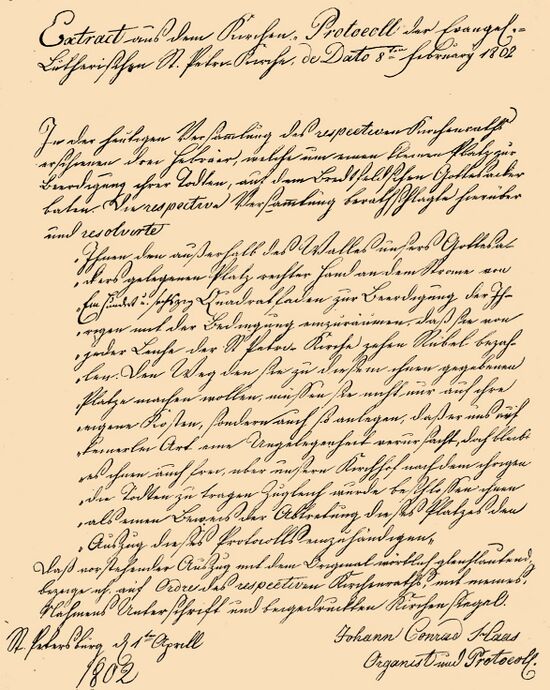 Extract aus dem Kirchen-Protocoll der Evangel.-
Lutherischen St. Petri-Kirche, de Dato 8ten February 1802
In der heutigen Versammlung des respectiven Kirchenraths
erschienen drei Hebräer, welche um einen kleinen Platz zur
Beerdigung ihrer Todten, auf dem Gottesacker
baten. Die respective Versammlung berathschlagte hierüber
und resolvirte
„Ihnen den außerhalb des Walles unsers Gottesa-
„ckers gelegenen Platz rechter Hand an dem Strome von
„Ein hundert u. sechzig Quadratfaden zur Beerdigung der Ih-
„rigen mit der Bedingung einzuräumen, daß sie von
„jeder Leiche der St Petri-Kirche zehen Rubel bezah-
„len. Den Weg den sie zu diesem ihnen gegebenen
„Platze machen wollen, müssen sie nicht nur auf ihre
„eigene Kosten, sondern auch so anlegen, daß er uns auf
„keinerlei Art eine Ungelegenheit verursacht, doch bleibt
„es ihnen auch frei, über unsern Kirchhof nach dem ihrigen
„die Todten zu tragen Zugleich wurde beschlossen ihnen
„als einen Beweis der Abtretung dieses Platzes den
„Auszug dieses Protocolls einzuhändigen„
Daß vorstehender Auszug mit dem Original wörtlich gleichlautend,
bezeuge ich auf Ordre des respectiven Kirchenraths mit meines
Nahmens Unterschrift und beigedruckten Kirchen Siegel.
St. Petersburg d 1ten Aprill
1802
Johann Conrad Haas
Organist und Protocoll.